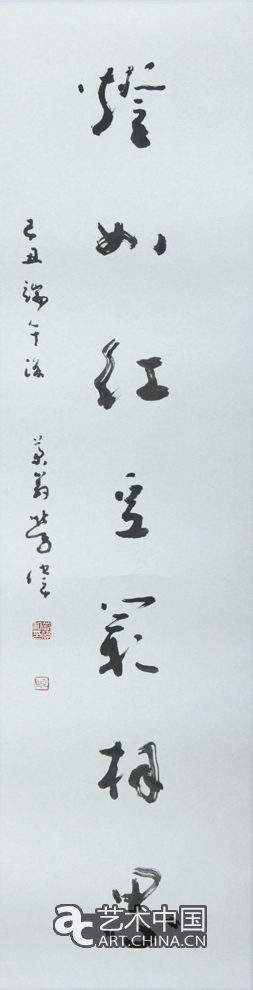 燈如紅豆最相思
己丑端午後
ac 艺术中国
ART.CHINA.CN